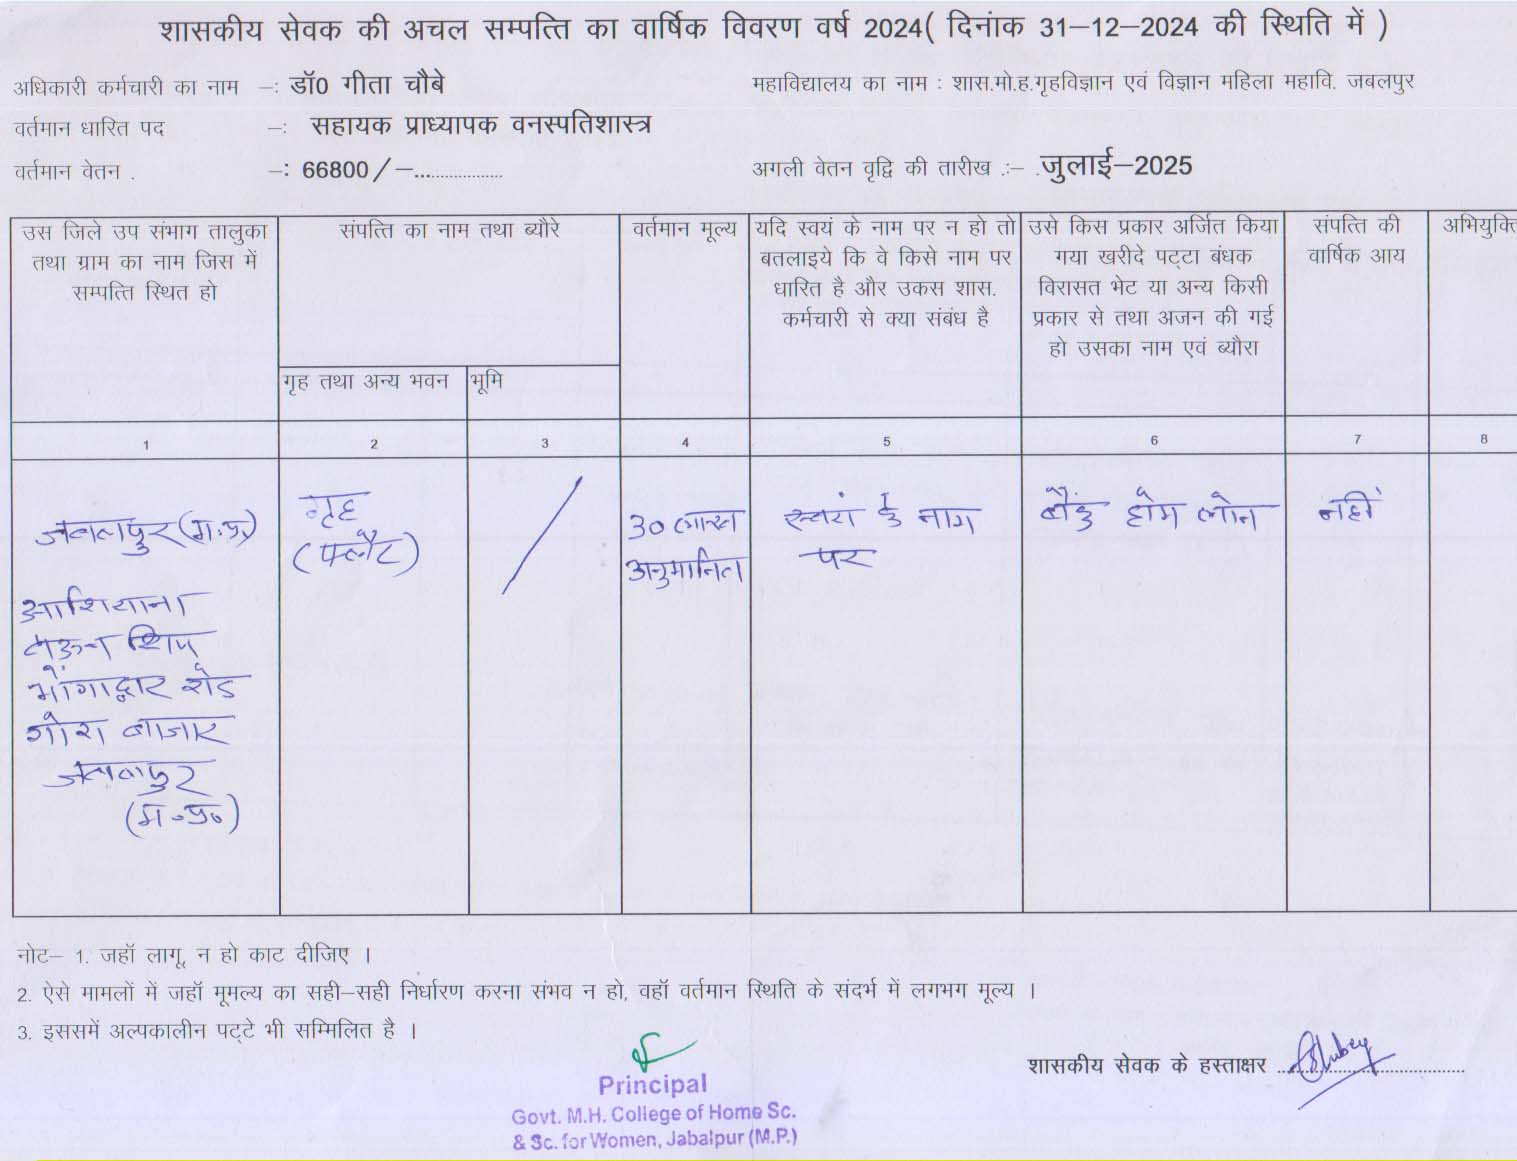 शासकीय सेवक की अचल सम्पत्ति का वार्षिक विवरण वर्ष 2024( दिनांक 31–12–2024 की स्थिति में )
अधिकारी कर्मचारी का नाम –: डॉ0 गीता चौबे महाविद्यालय का नाम : शास.मो.ह.गृहविज्ञान एवं विज्ञान महिला महावि. जबलपुर
वर्तमान धारित पद –: सहायक प्राध्यापक वनस्पतिशास्त्र
वर्तमान वेतन . –: 66800/–.................. अगली वेतन वृद्वि की तारीख .:– .जुलाई–2025
उस जिले उप संभाग तालुका
तथा ग्राम का नाम जिस में
सम्पत्ति स्थित हो
संपत्ति का नाम तथा ब्यौरे
गृह तथा अन्य भवन
भूमि
वर्तमान मूल्य
यदि स्वयं के नाम पर न हो तो
बतलाइये कि वे किसे नाम पर
धारित है और उकस शास.
कर्मचारी से क्या संबंध है
उसे किस प्रकार अर्जित किया
गया खरीदे पट्टा बंधक
विरासत भेट या अन्य किसी
प्रकार से तथा अजन की गई
हो उसका नाम एवं ब्यौरा
संपत्ति की
वार्षिक आय
अभियुक्ति
1 2 3 4 5 6 7 8
जबलपुर (म.प्र)
आशियाना
टाऊन शिप
भोंगाद्वार रोड
गोरा बाजार
जबलपुर
(म.प्र.)
गृह
(फ्लैट)
30 लाख
अनुमानित
स्वयं के नाम
पर
बैंक होम लोन
नहीं
नोट– 1. जहॉ लागू, न हो काट दीजिए ।
2. ऐसे मामलों में जहॉ मूमल्य का सही–सही निर्धारण करना संभव न हो, वहॉ वर्तमान स्थिति के संदर्भ में लगभग मूल्य ।
3. इससमें अल्पकालीन पट्टे भी सम्मिलित है ।
शासकीय सेवक के हस्ताक्षर ..............................
Principal
Govt. M.H. College of Home Sc.
& Sc. for Women, Jabalpur (M.P.)